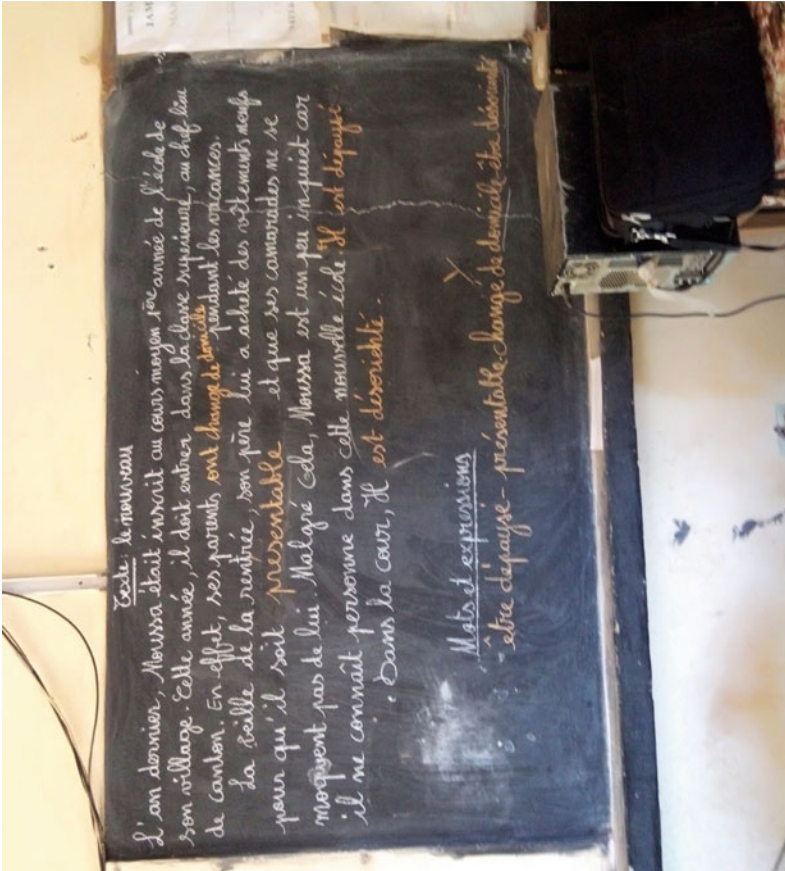 Texte le nouveau
L'an dernier, Moussa était inscrit au cours moyen 1ère année de l'école de
son village. Cette année, il doit entrer dans la classe supérieure, au chef lieu
de canton. En effet, ses parents ont changé de domicile pendant les vacances.
La veille de la rentrée, son père lui a acheté des vêtements neufs
pour qu'il soit présentable et que ses camarades ne se
moquent pas de lui. Malgré Cela, Moussa est un peu inquiet car
il ne connaît personne dans cette nouvelle école. Il est dépaysé
. Dans la cour, Il est désorienté.
Mots et expressions
être dépaysé - présentable changé de domicile - être désorienté
JAM